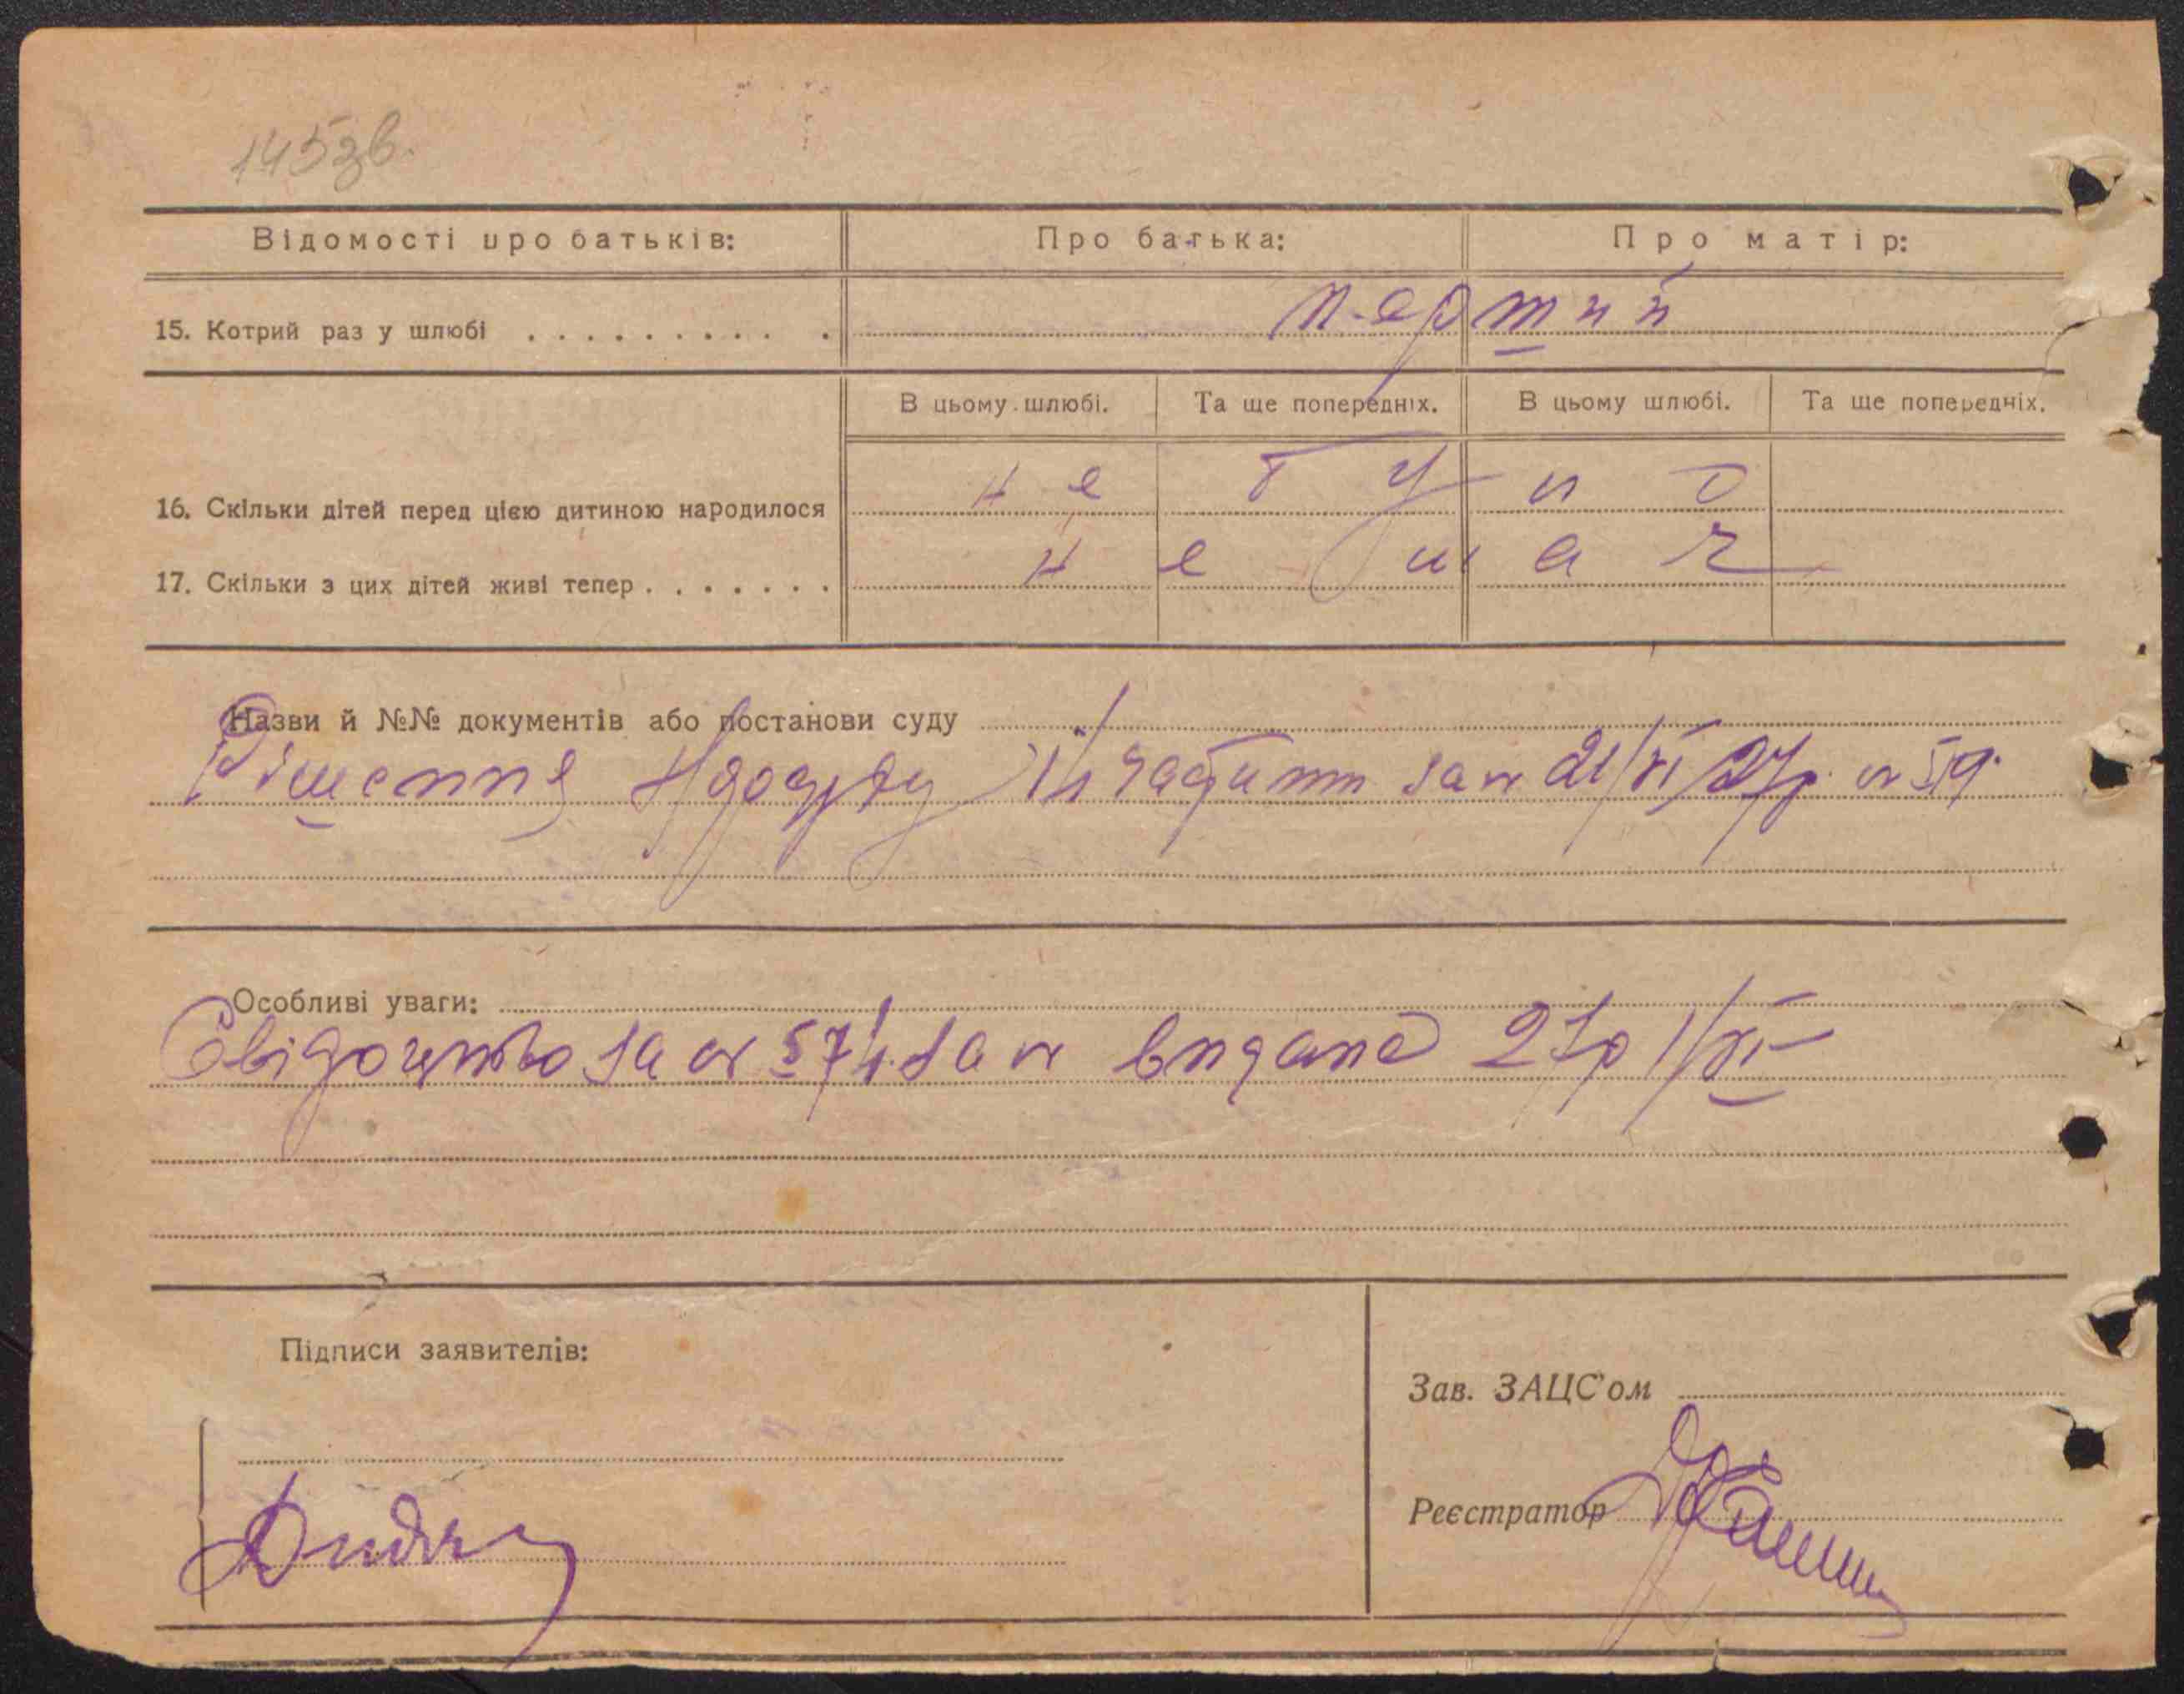 145зв.
Відомості про батьків: Про батька: Про матір:
15. Котрий раз у шлюбі . . . . . . . . . . перший
В цьому шлюбі. Та ще попередніх. В цьому шлюбі. Та ще попередніх.
16. Скільки дітей перед цією дитиною народилося не було
17. Скільки з цих дітей живі тепер . . . . . . . не має
Назви й №№ документів або постанови суду
Рішення за № 21/VI 27р. № 519.
Особливі уваги:
Свідоцтво за № 574. за № видано 27р 1/XI
Підписи заявителів:
Зав. ЗАЦС'ом
Реєстратор